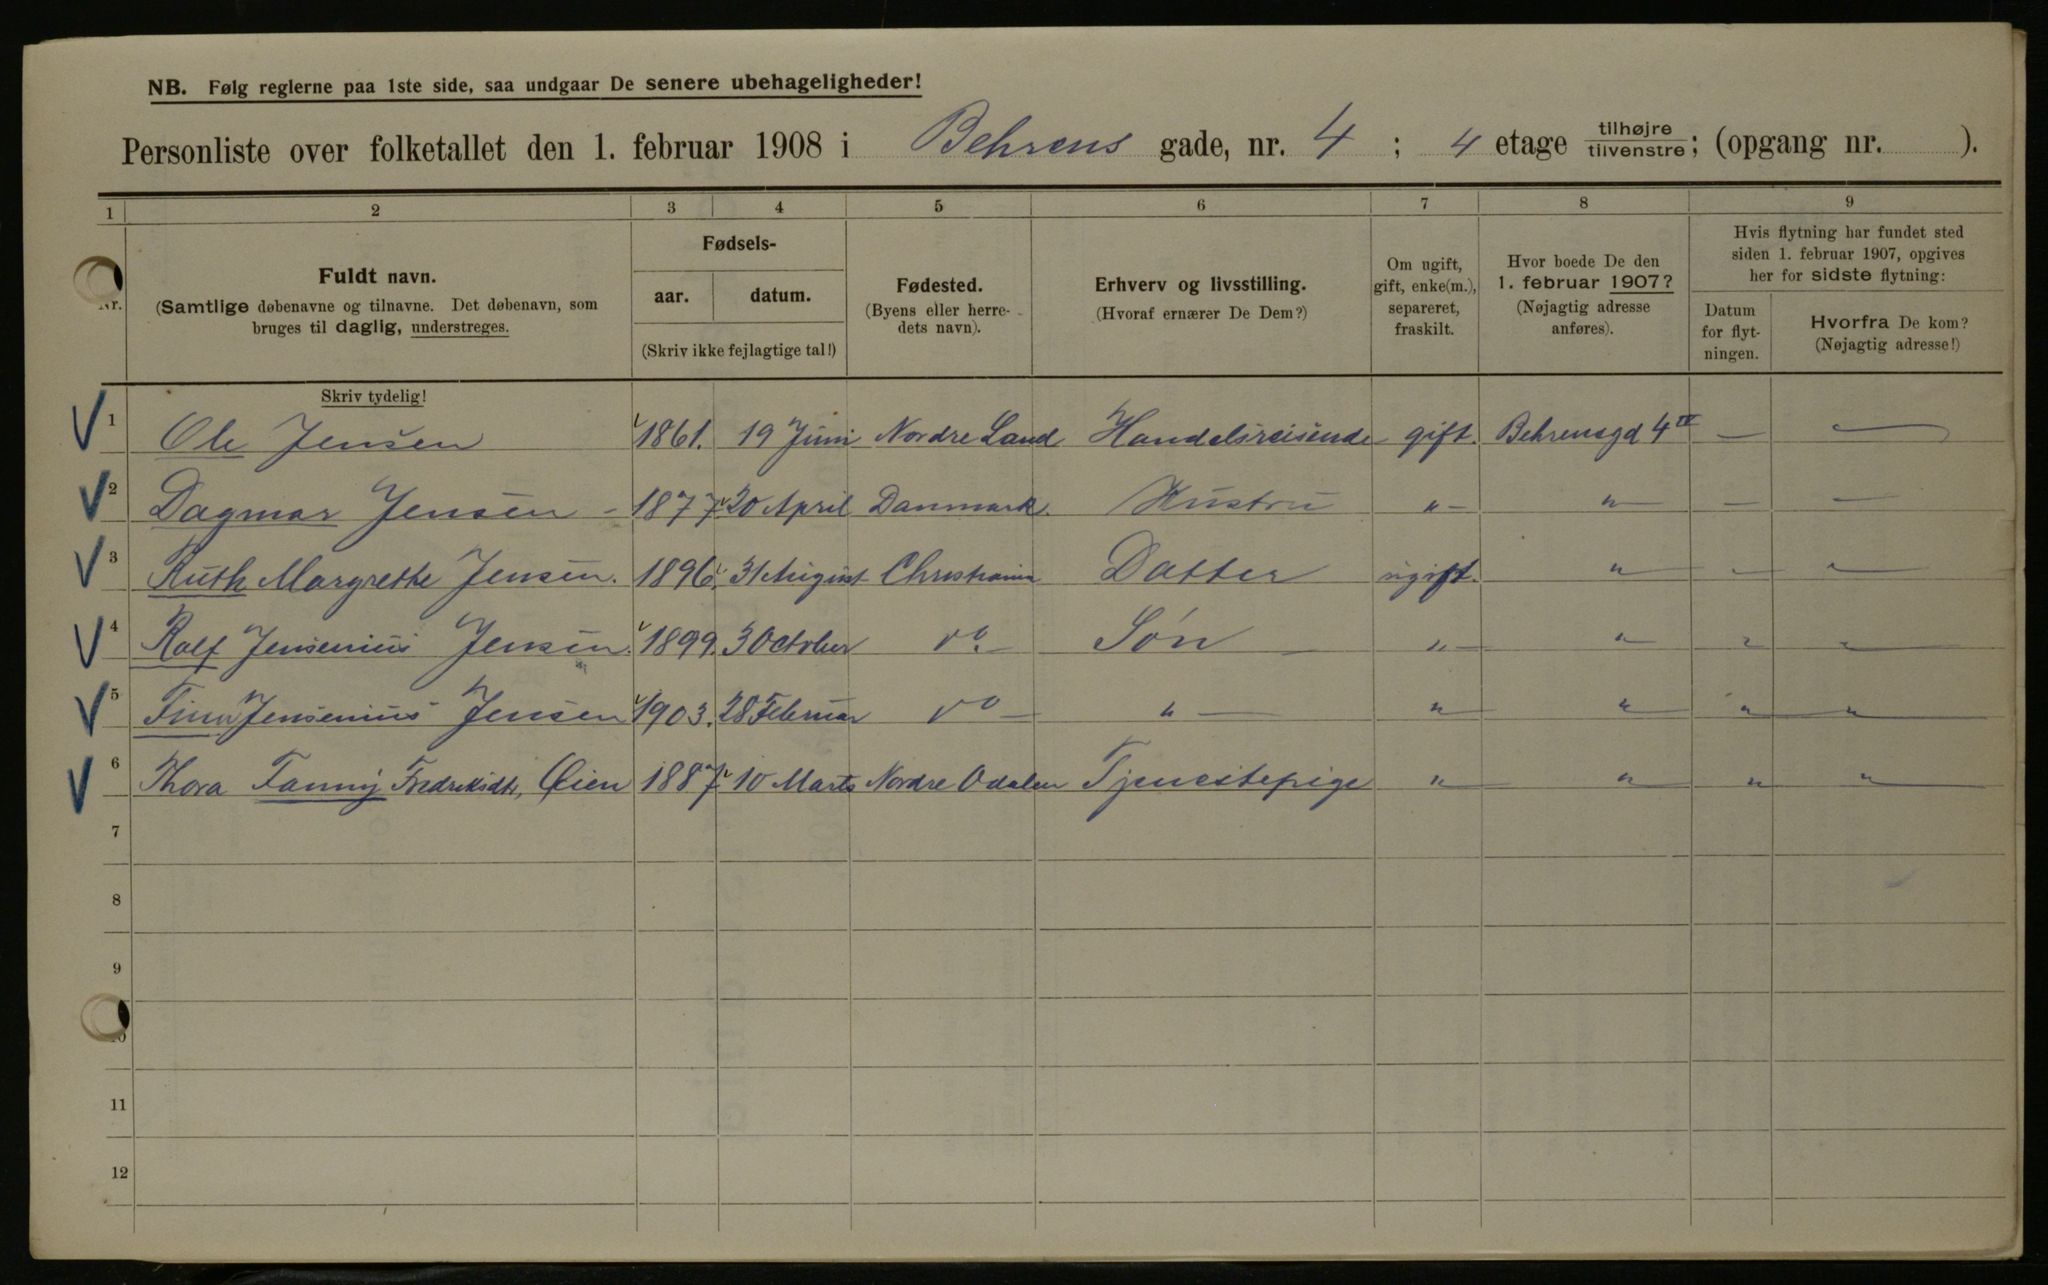 NB. Følg reglerne paa 1ste side, saa undgaar De senere ubehageligheder!
Personliste over folketallet den 1. februar 1908 i Behrens gade, nr. 4 ; 4 etage tilhøjre tilvenstre ; (opgang nr. ).
1 2 3 4 5 6 7 8 9
Nr.
Fuldt navn.
(Samtlige døbenavne og tilnavne. Det døbenavn, som
bruges til daglig, understreges.
Fødsels-
aar. datum.
(Skriv ikke fejlagtige tal!)
Fødested.
(Byens eller herre-
dets navn).
Erhverv og livsstilling.
(Hvoraf ernærer De Dem?)
Om ugift,
gift, enke(m.),
separeret,
fraskilt.
Hvor boede De den
1. februar 1907?
(Nøjagtig adresse
anføres).
Hvis flytning har fundet sted
siden 1. februar 1907, opgives
her for sidste flytning:
Datum
for flyt-
ningen.
Hvorfra De kom?
(Nøjagtig adresse!)
Skriv tydelig!
1 Ole Jensen 1861. 19 Juni Nordre Land Handelsreisende gift. Behrensgd 4 IV — —
2 Dagmar Jensen - 1877 20 April Danmark. Hustru " — " — — —
3 Ruth Margrethe Jensen. 1896. 31 August Christiania Datter ugift. " — — —
4 Rolf Jensenius Jensen. 1899. 3 October do. — Søn — " — " — " "
5 Finn Jensenius Jensen 1903. 28 Februar do — " — " " " "
6 Thora Fanny Fredriksdtr, Øien 1887 10 Marts Nordre Odalen Tjenestepige " " " "
7
8
9
10
11
12